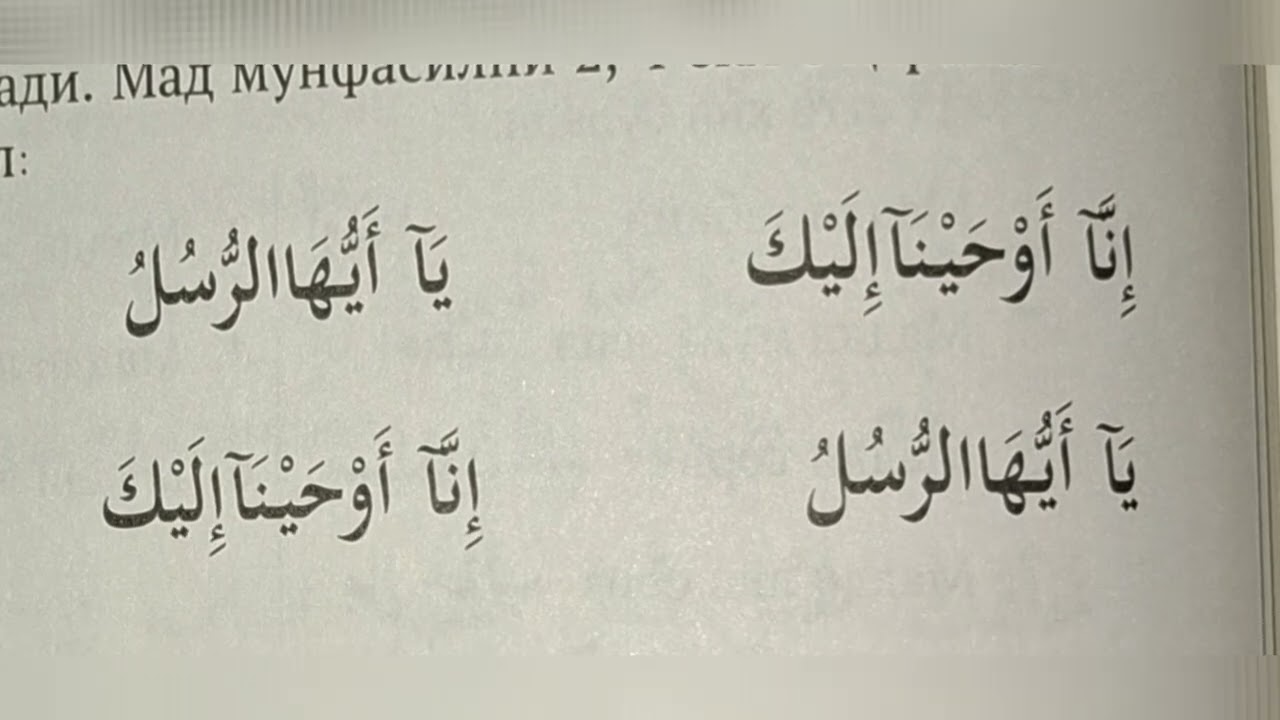 ади. Мад мунфасилни 2, 4
л:
إِنَّآ أَوْحَيْنَآإِلَيْكَ يَآ أَيُّهَاالرُّسُلُ
يَآ أَيُّهَاالرُّسُلُ إِنَّآ أَوْحَيْنَآإِلَيْكَ